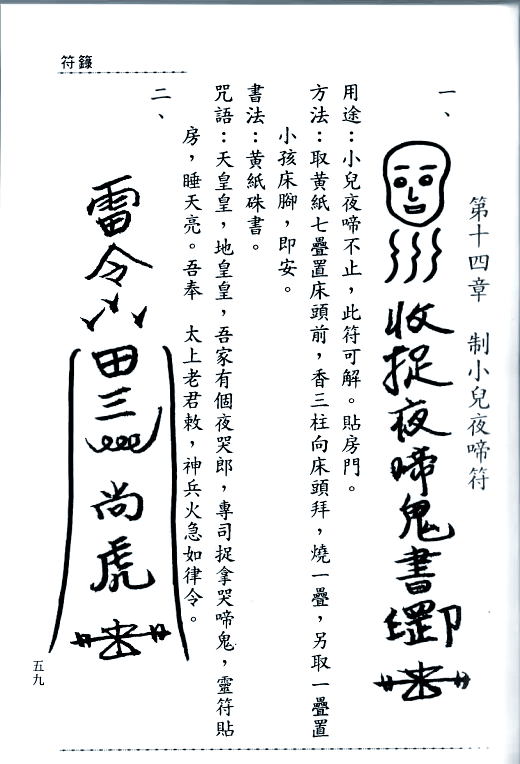 符籙
第十四章　制小兒夜啼符
一、
收捉夜啼鬼書
用途：小兒夜啼不止，此符可解。貼房門。
方法：取黃紙七疊置床頭前，香三柱向床頭拜，燒一疊，另取一疊置
小孩床腳，即安。
書法：黃紙硃書。
咒語：天皇皇，地皇皇，吾家有個夜哭郎，專司捉拿哭啼鬼，靈符貼
房，睡天亮。吾奉　太上老君敕，神兵火急如律令。
二、
雷令
田三
尚虎
五九